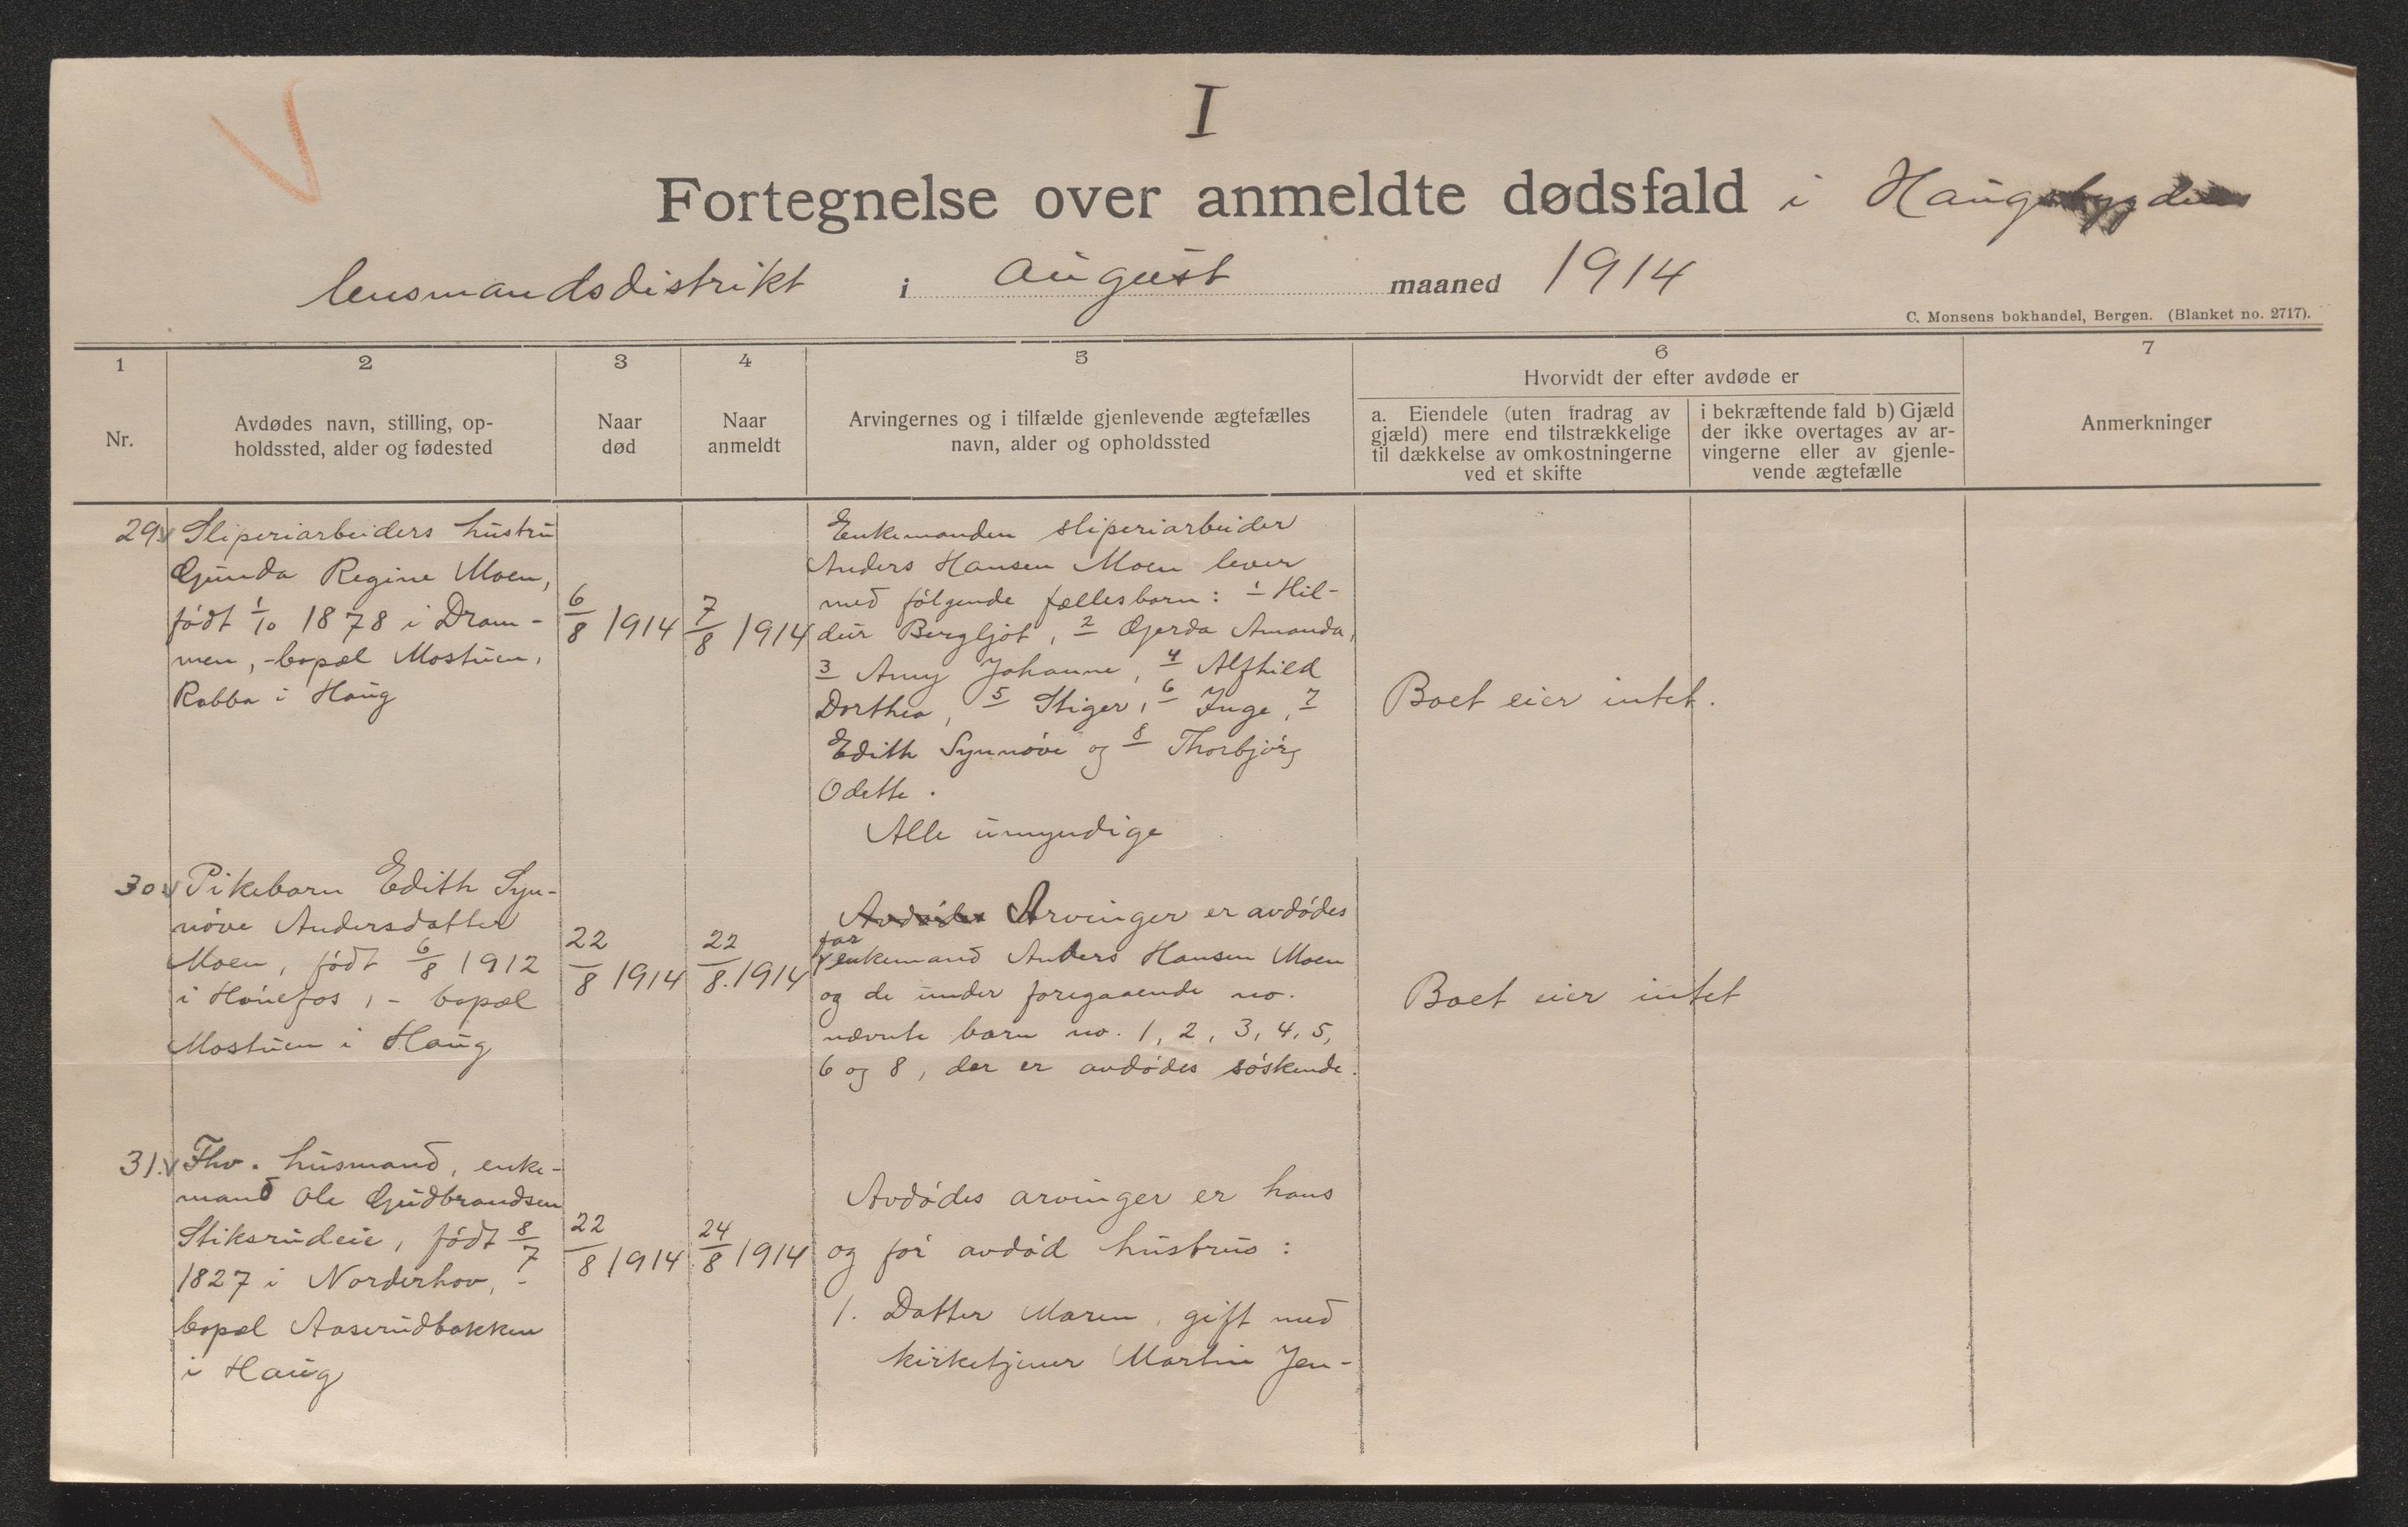 I
Fortegnelse over anmeldte dødsfald i Haugsbygdens
lensmandsdistrikt i august maaned 1914
C. Monsens bokhandel, Bergen. (Blanket no. 2717).
1
Nr.
2
Avdødes navn, stilling, op-
holdssted, alder og fødested
3
Naar
død
4
Naar
anmeldt
5
Arvingernes og i tilfælde gjenlevende ægtefælles
navn, alder og opholdssted
6
Hvorvidt der efter avdøde er
a. Eiendele (uten fradrag av
gjæld) mere end tilstrækkelige
til dækkelse av omkostningerne
ved et skifte
i bekræftende fald b) Gjæld
der ikke overtages av ar-
vingerne eller av gjenle-
vende ægtefælle
7
Anmerkninger
29. Sliperiarbeiders hustru
Gunda Regine Moen,
født 1/10 1878 i Dram-
men, - bopæl Mostuen,
Rabba i Haug
6/8 1914
7/8 1914
Enkemanden sliperiarbeider
Anders Hansen Moen lever
med følgende fællesbarn: 1 Hil-
dur Bergljot, 2 Gjerda Amanda,
3 Anny Johanne, 4 Alfhild
Dorthea, 5 Stiger, 6 Inge, 7
Edith Synnøve og 8 Thorbjørg
Odette.
Alle umyndige
Boet eier intet.
30. Pikebarn Edith Syn-
nøve Andersdatter
Moen, født 6/8 1912
i Hønefos, - bopæl
Mostuen i Haug
22/8 1914
22/8. 1914
Avdødes Arvinger er avdødes
far
enkemand Anders Hansen Moen
og de under foregaaende no.
nævnte barn no. 1, 2, 3, 4, 5,
6 og 8, der er avdødes søskende.
Boet eier intet
31. Fhv. husmand, enke-
mand Ole Gudbrandsen
Stiksrudeie, født 8/7
1827 i Norderhov, -
bopæl Aaserudbakken
i Haug
22/8 1914
24/8 1914
Avdødes arvinger er hans
og før avdød hustrus:
1. Datter Maren, gift med
kirketjener Martin Jen-